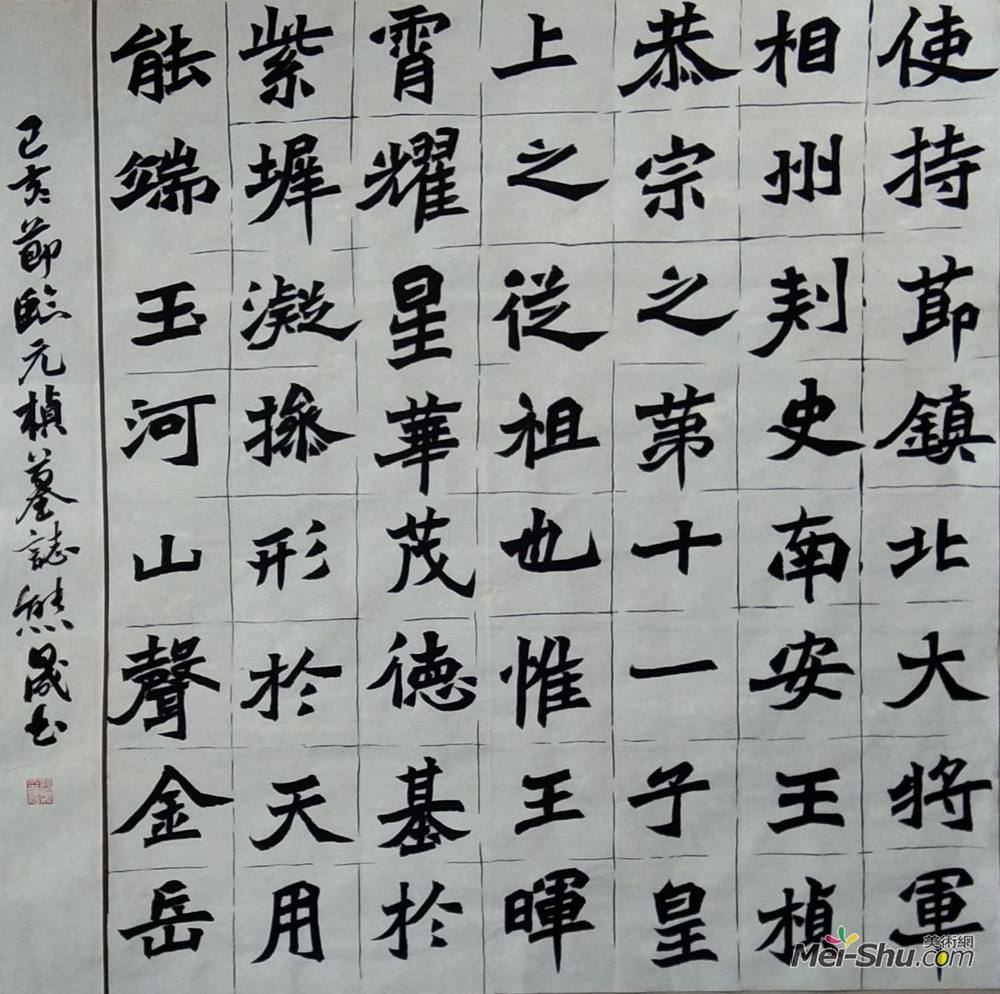 使持莭鎮北大將軍
相州刾史南安王楨
恭宗之苐十一子皇
上之從祖也惟王暉
霄耀星華茂徳基於
紫墀凝操形於天用
能端玉河山聲金岳
己亥莭臨元楨墓誌熊晟书
美術網
Mei-Shu.com